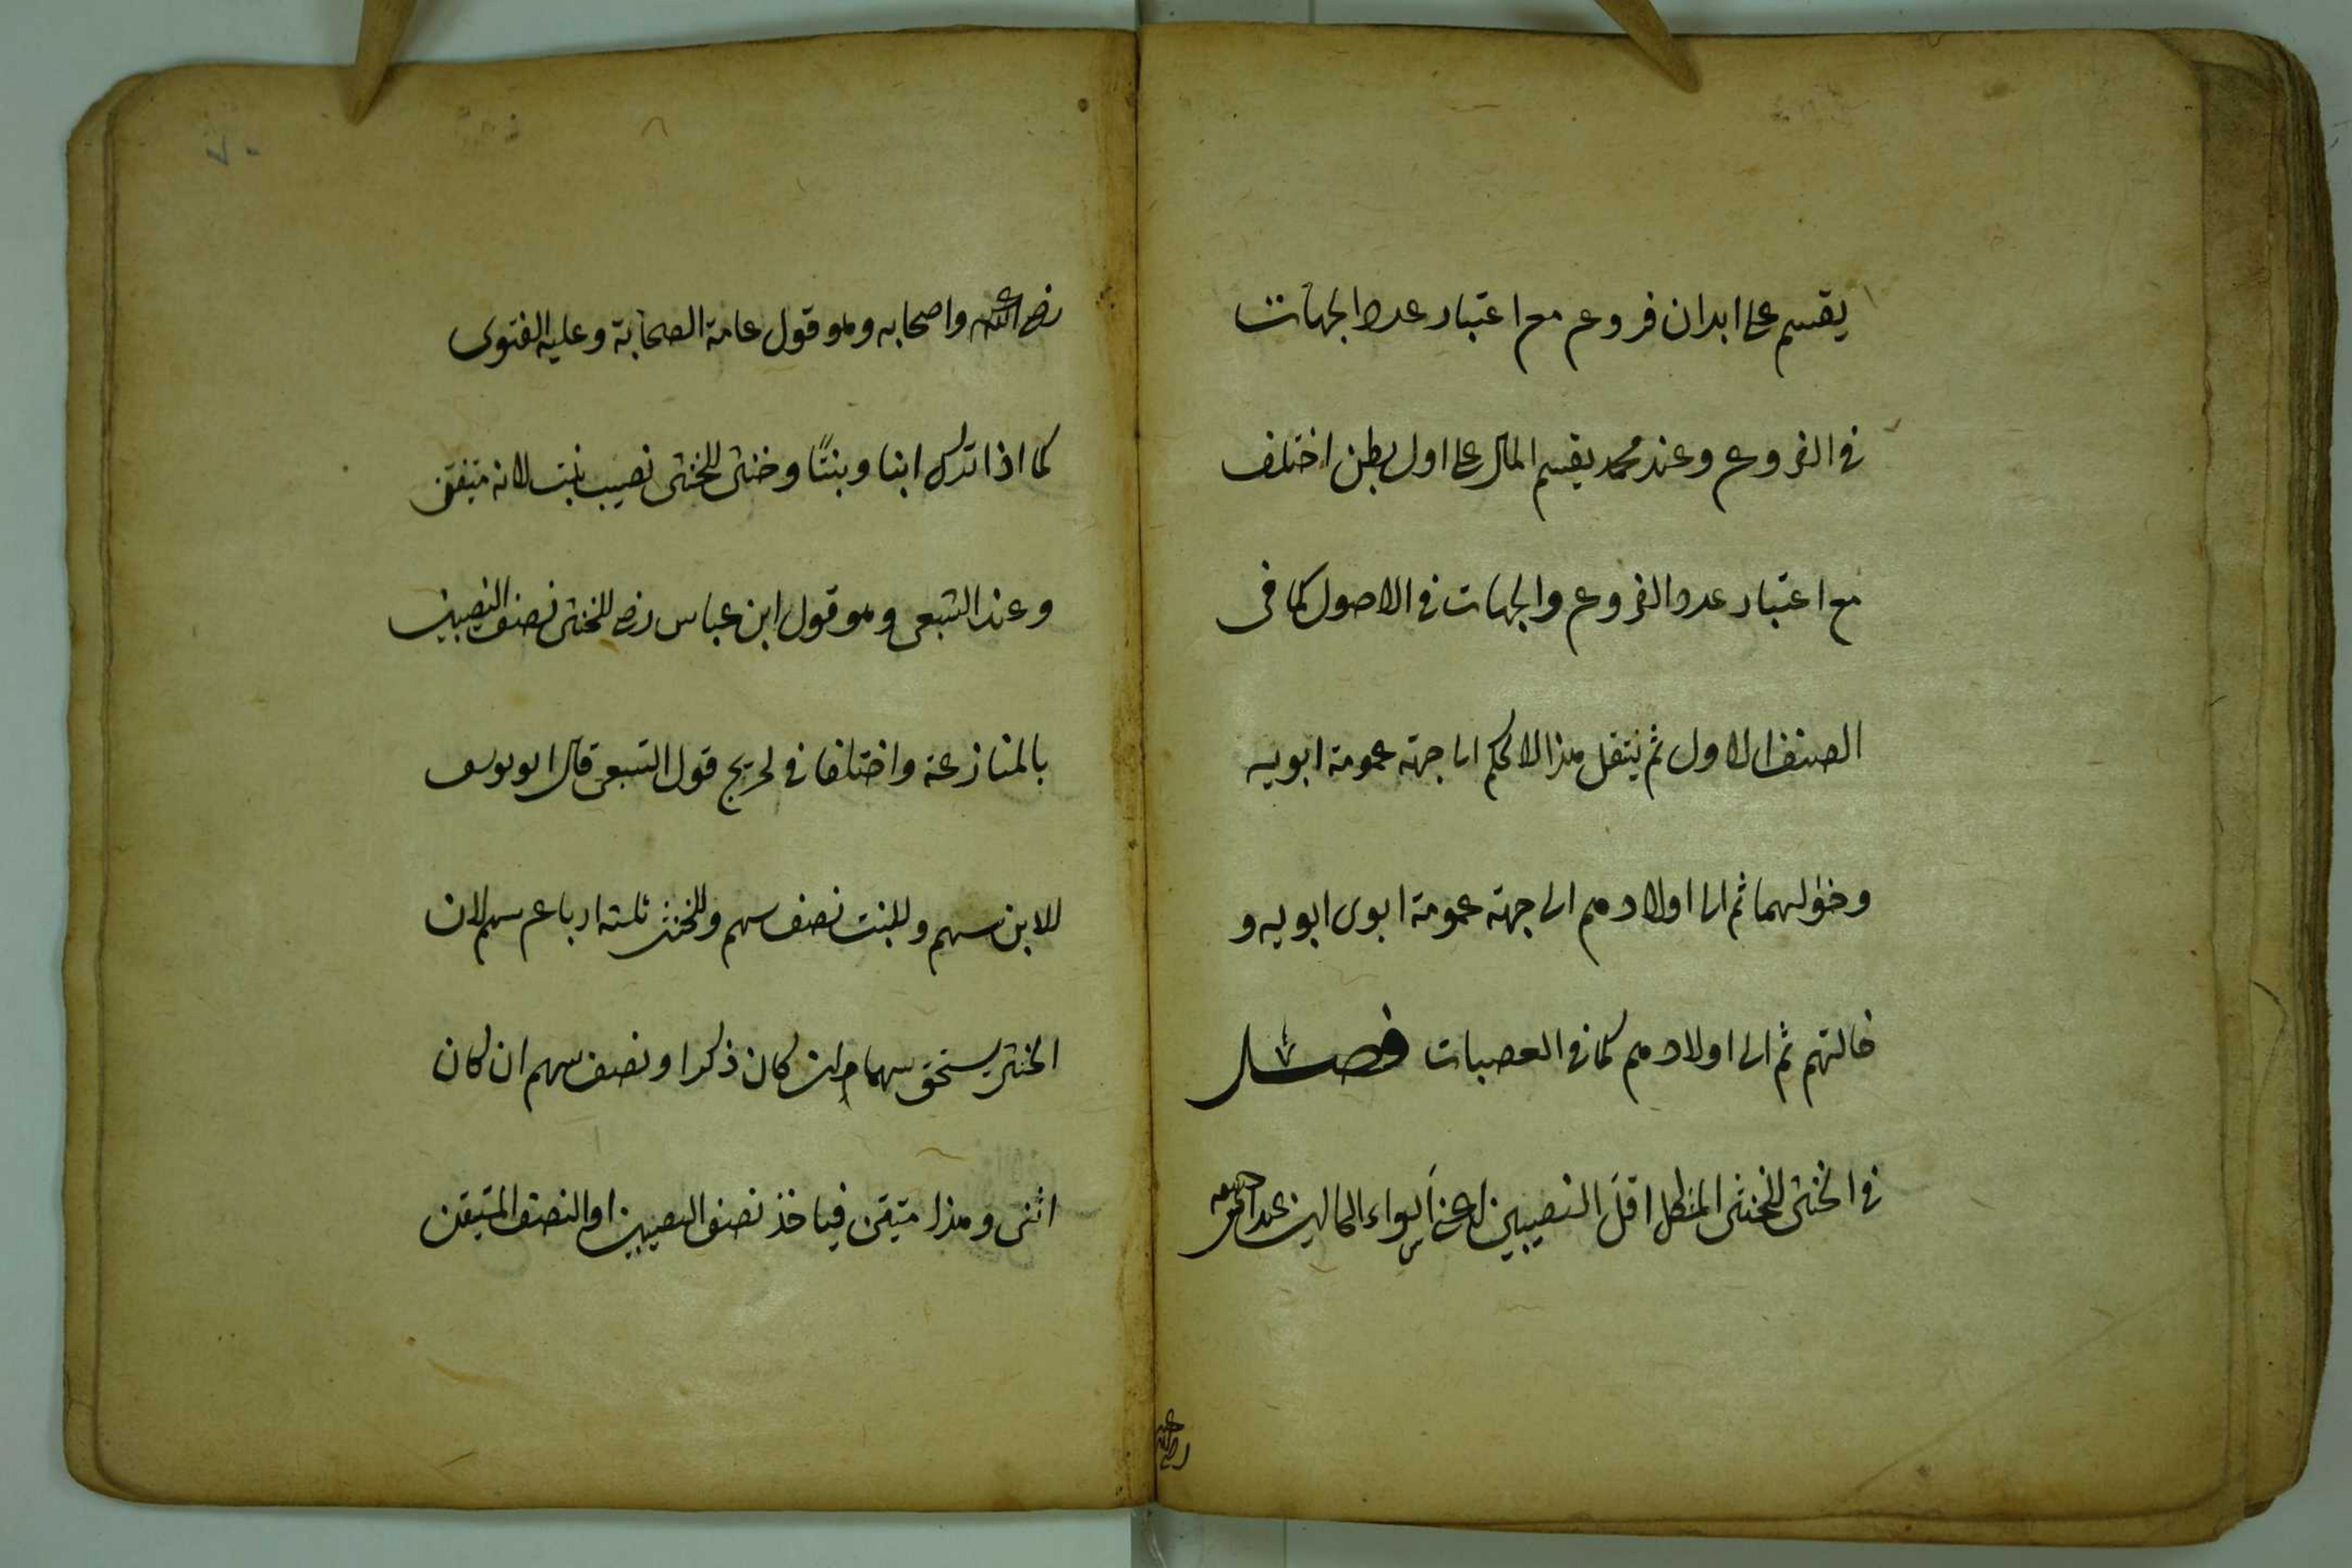 يقسم على ابدان فروعم مع اعتبار عدد الجهات
فى الفروع وعند محمد يقسم المال على اول بطن اختلف
مع اعتبار عدد الفروع والجهات فى الاصول كما فى
الصنف الاول ثم ينتقل هذا الحكم الى جهة عمومة ابويه
وخؤلهما ثم الى اولادهم الى جهة عمومة ابوى ابويه و
خالتهم ثم الى اولادهم كما فى العصبات فصل
فى الخنثى للخنثى المشكل اقل النصيبين اعنى اسواء الحالين عند
رضى الله عنه
رضى الله عنه واصحابه وهو قول عامة الصحابة وعليه الفتوى
كما اذا ترك ابنا وبنتًا وخنثى للخنثى نصيب بنت لانه متيقن
وعند الشعبى وهو قول ابن عباس رضى للخنثى نصف النصيبين
بالمنازعة واختلفا فى تخريج قول الشعبى قال ابو يوسف
للابن سهم وللبنت نصف سهم وللخنثى ثلثة ارباع سهم لان
الخنثى يستحق سهما ان كان ذكرا ونصف سهم ان كان
انثى وهذا متيقن فياخذ نصف النصيبين او النصف المتيقن